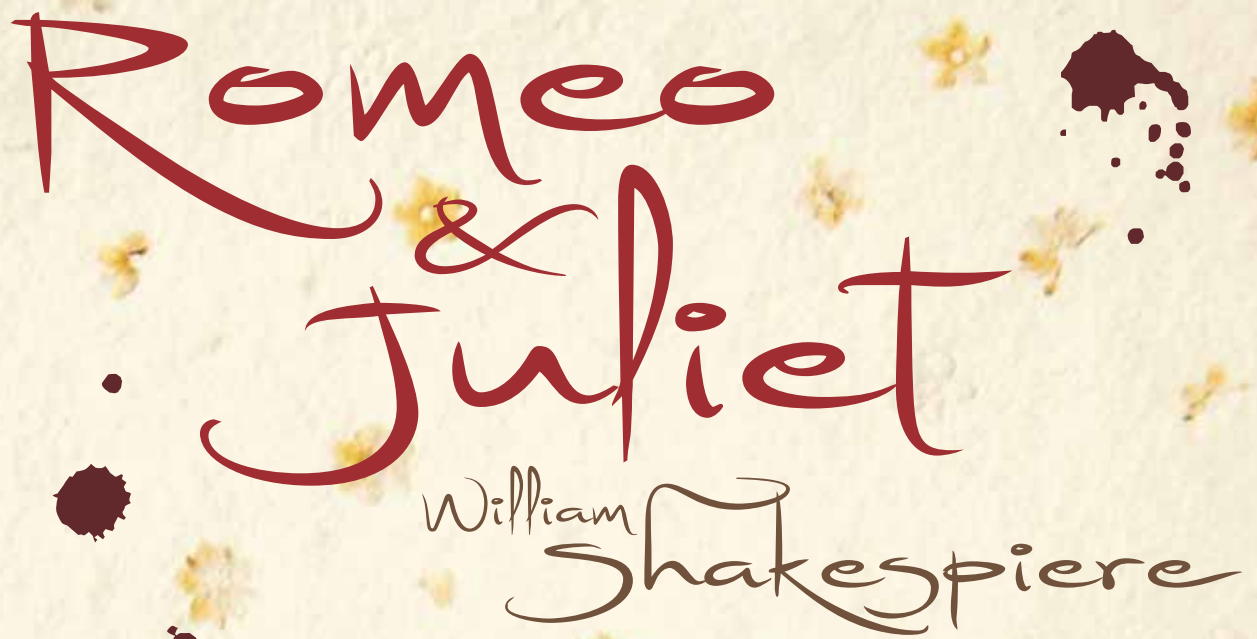 Romeo
&
Juliet
William
Shakespiere